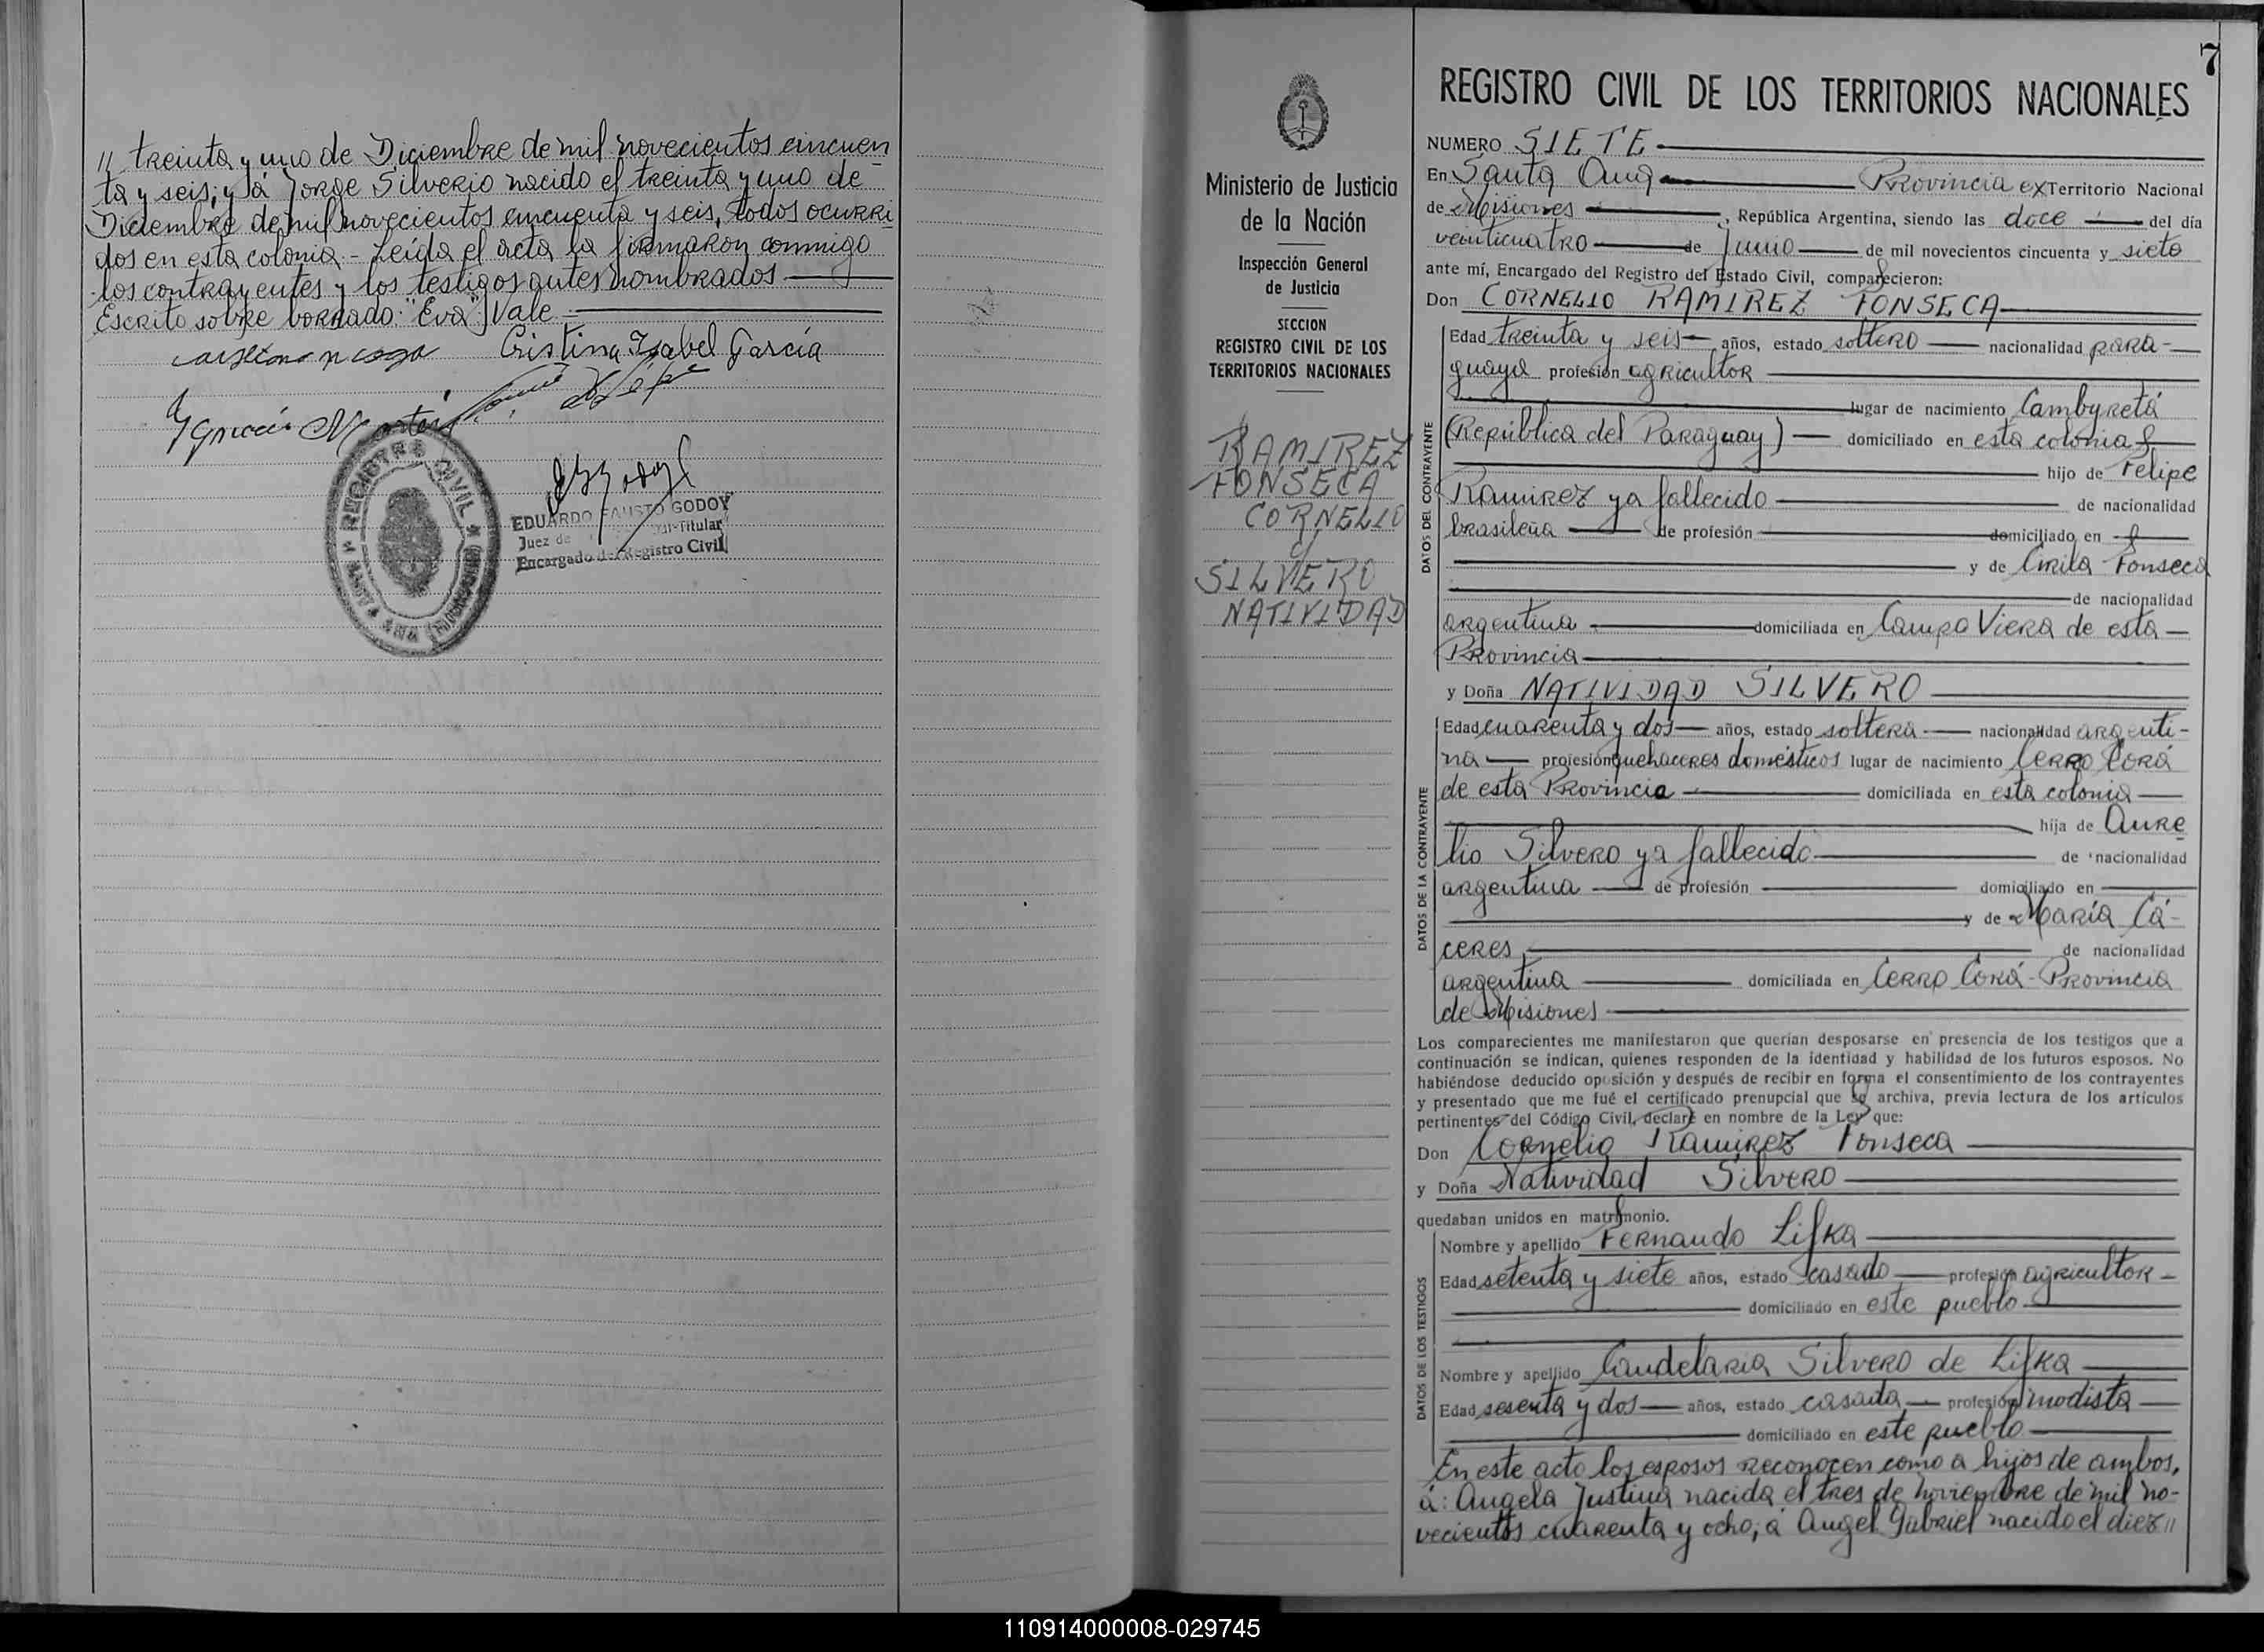 // treinta y uno de Diciembre de mil novecientos cincuen
ta y seis; y á Jorge Silverio nacido el treinta y uno de
Diciembre de mil novecientos cincuenta y seis, todos ocurri
dos en esta colonia - Leída el acta la firmaron conmigo
los contrayentes y los testigos antes nombrados
Escrito sobre borrado: "Eva" Vale
Cristina Isabel García
Ygnacio
REGISTRO CIVIL
EDUARDO FAUSTO GODOY
Juez de Titular
Encargado del Registro Civil
7
Ministerio de Justicia
de la Nación
Inspección General
de Justicia
SECCION
REGISTRO CIVIL DE LOS
TERRITORIOS NACIONALES
RAMIREZ
FONSECA
CORNELIO
c/
SILVERO
NATIVIDAD
REGISTRO CIVIL DE LOS TERRITORIOS NACIONALES
NUMERO SIETE
En Santa Ana Provincia ex Territorio Nacional
de Misiones, República Argentina, siendo las doce del día
veinticuatro de Junio de mil novecientos cincuenta y siete
ante mí, Encargado del Registro del Estado Civil, comparecieron:
Don CORNELIO RAMIREZ FONSECA
DATOS DEL CONTRAYENTE
Edad treinta y seis años, estado soltero nacionalidad para-
guaya profesión agricultor
lugar de nacimiento Cambyretá
(República del Paraguay) domiciliado en esta colonia
hijo de Felipe
Ramirez ya fallecido de nacionalidad
brasileña de profesión domiciliado en
y de Cirila Fonseca
de nacionalidad
argentina domiciliada en Campo Viera de esta
Provincia
y Doña NATIVIDAD SILVERO
DATOS DE LA CONTRAYENTE
Edad cuarenta y dos años, estado soltera nacionalidad argenti-
na profesión quehaceres domésticos lugar de nacimiento Cerro Corá
de esta Provincia domiciliada en esta colonia
hija de Aure
lio Silvero ya fallecido de nacionalidad
argentina de profesión domiciliado en
y de María Cá-
ceres de nacionalidad
argentina domiciliada en Cerro Corá - Provincia
de Misiones
Los comparecientes me manifestaron que querían desposarse en presencia de los testigos que a
continuación se indican, quienes responden de la identidad y habilidad de los futuros esposos. No
habiéndose deducido oposición y después de recibir en forma el consentimiento de los contrayentes
y presentado que me fué el certificado prenupcial que se archiva, previa lectura de los artículos
pertinentes del Código Civil, declaré en nombre de la Ley que:
Don Cornelio Ramirez Fonseca
y Doña Natividad Silvero
quedaban unidos en matrimonio.
DATOS DE LOS TESTIGOS
Nombre y apellido Fernando Lifka
Edad setenta y siete años, estado casado profesión agricultor
domiciliado en este pueblo
Nombre y apellido Candelaria Silvero de Lifka
Edad sesenta y dos años, estado casada profesión modista
domiciliado en este pueblo
En este acto los esposos reconocen como a hijos de ambos,
á: Angela Justina nacida el tres de noviembre de mil no-
vecientos cuarenta y ocho; á Angel Gabriel nacido el diez //
110914000008-029745